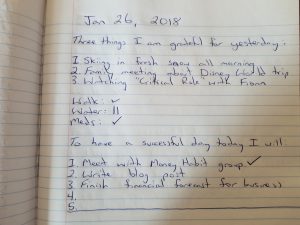 Jan 26, 2018
Three things I am grateful for yesterday:
1. Skiing in fresh snow all morning
2. Family meeting about Disney World trip
3. Watching "Critical Role" with Fionn
Walk: ✓
Water: ||
Meds: ✓
To have a successful day today I will
1. Meet with Money Habit group ✓
2. Write blog post
3. Finish financial forecast for business
4.
5.